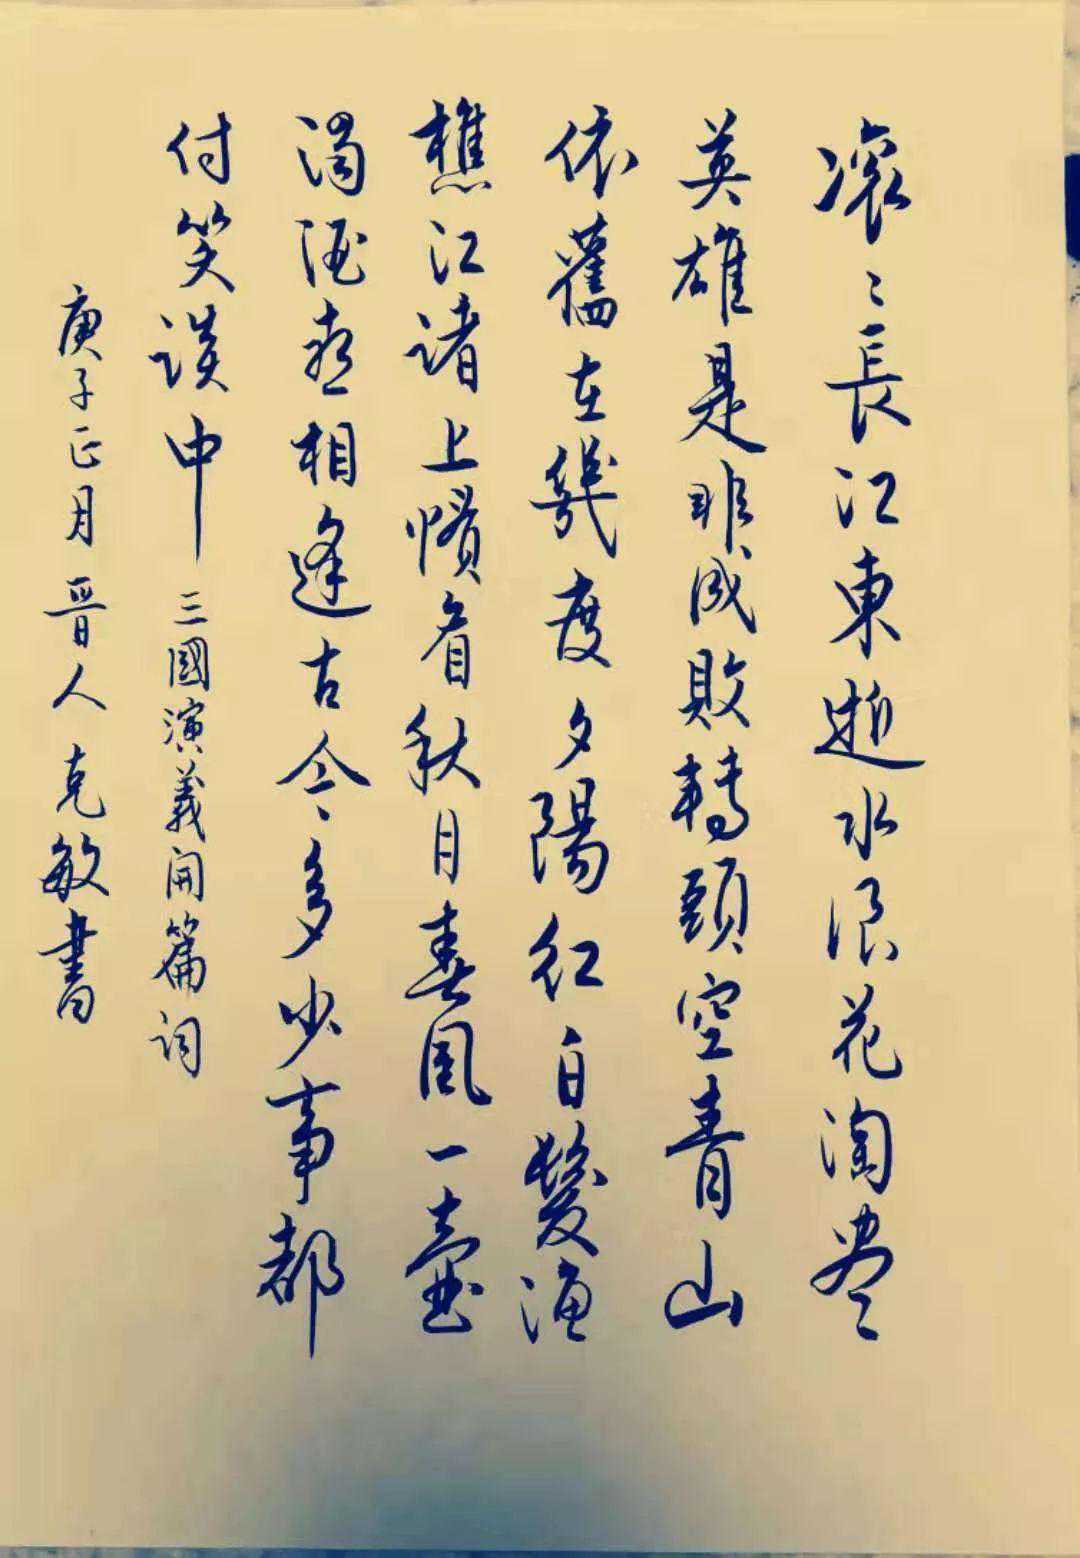 滚〻長江東逝水浪花淘尽
英雄是非成敗轉頭空青山
依舊在幾度夕陽红白髮渔
樵江渚上惯看秋月春風一壷
濁酒喜相逢古今多少事都
付笑談中 三國演義开篇词
庚子正月晋人克敏書